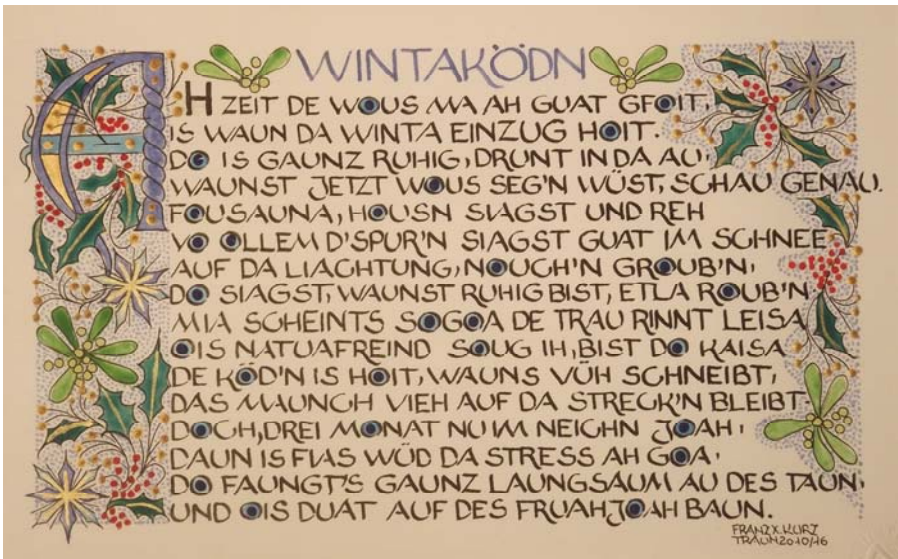 WINTAKÖDN
AH ZEIT DE WOUS MA AH GUAT GFOIT,
IS WAUN DA WINTA EINZUG HOIT.
DO IS GAUNZ RUHIG, DRUNT IN DA AU,
WAUNST JETZT WOUS SEG'N WÜST, SCHAU GENAU.
FOUSAUNA, HOUSN SIAGST UND REH
VO OLLEM D'SPUR'N SIAGST GUAT IM SCHNEE
AUF DA LIACHTUNG, NOUCH'N GROUB'N,
DO SIAGST, WAUNST RUHIG BIST, ETLA ROUB'N
MIA SCHEINTS SOGOA DE TRAU RINNT LEISA
OIS NATUAFREIND SOUG IH, BIST DO KAISA
DE KÖD'N IS HOIT, WAUNS VÜH SCHNEIBT,
DAS MAUNCH VIEH AUF DA STRECK'N BLEIBT.
DOCH, DREI MONAT NU IM NEICHN JOAH,
DAUN IS FIAS WÜD DA STRESS AH GOA.
DO FAUNGT'S GAUNZ LAUNGSAUM AU DES TAUN,
UND OIS DUAT AUF DES FRUAHJOAH BAUN.
FRANZ X. KURZ
TRAUN 2010/16